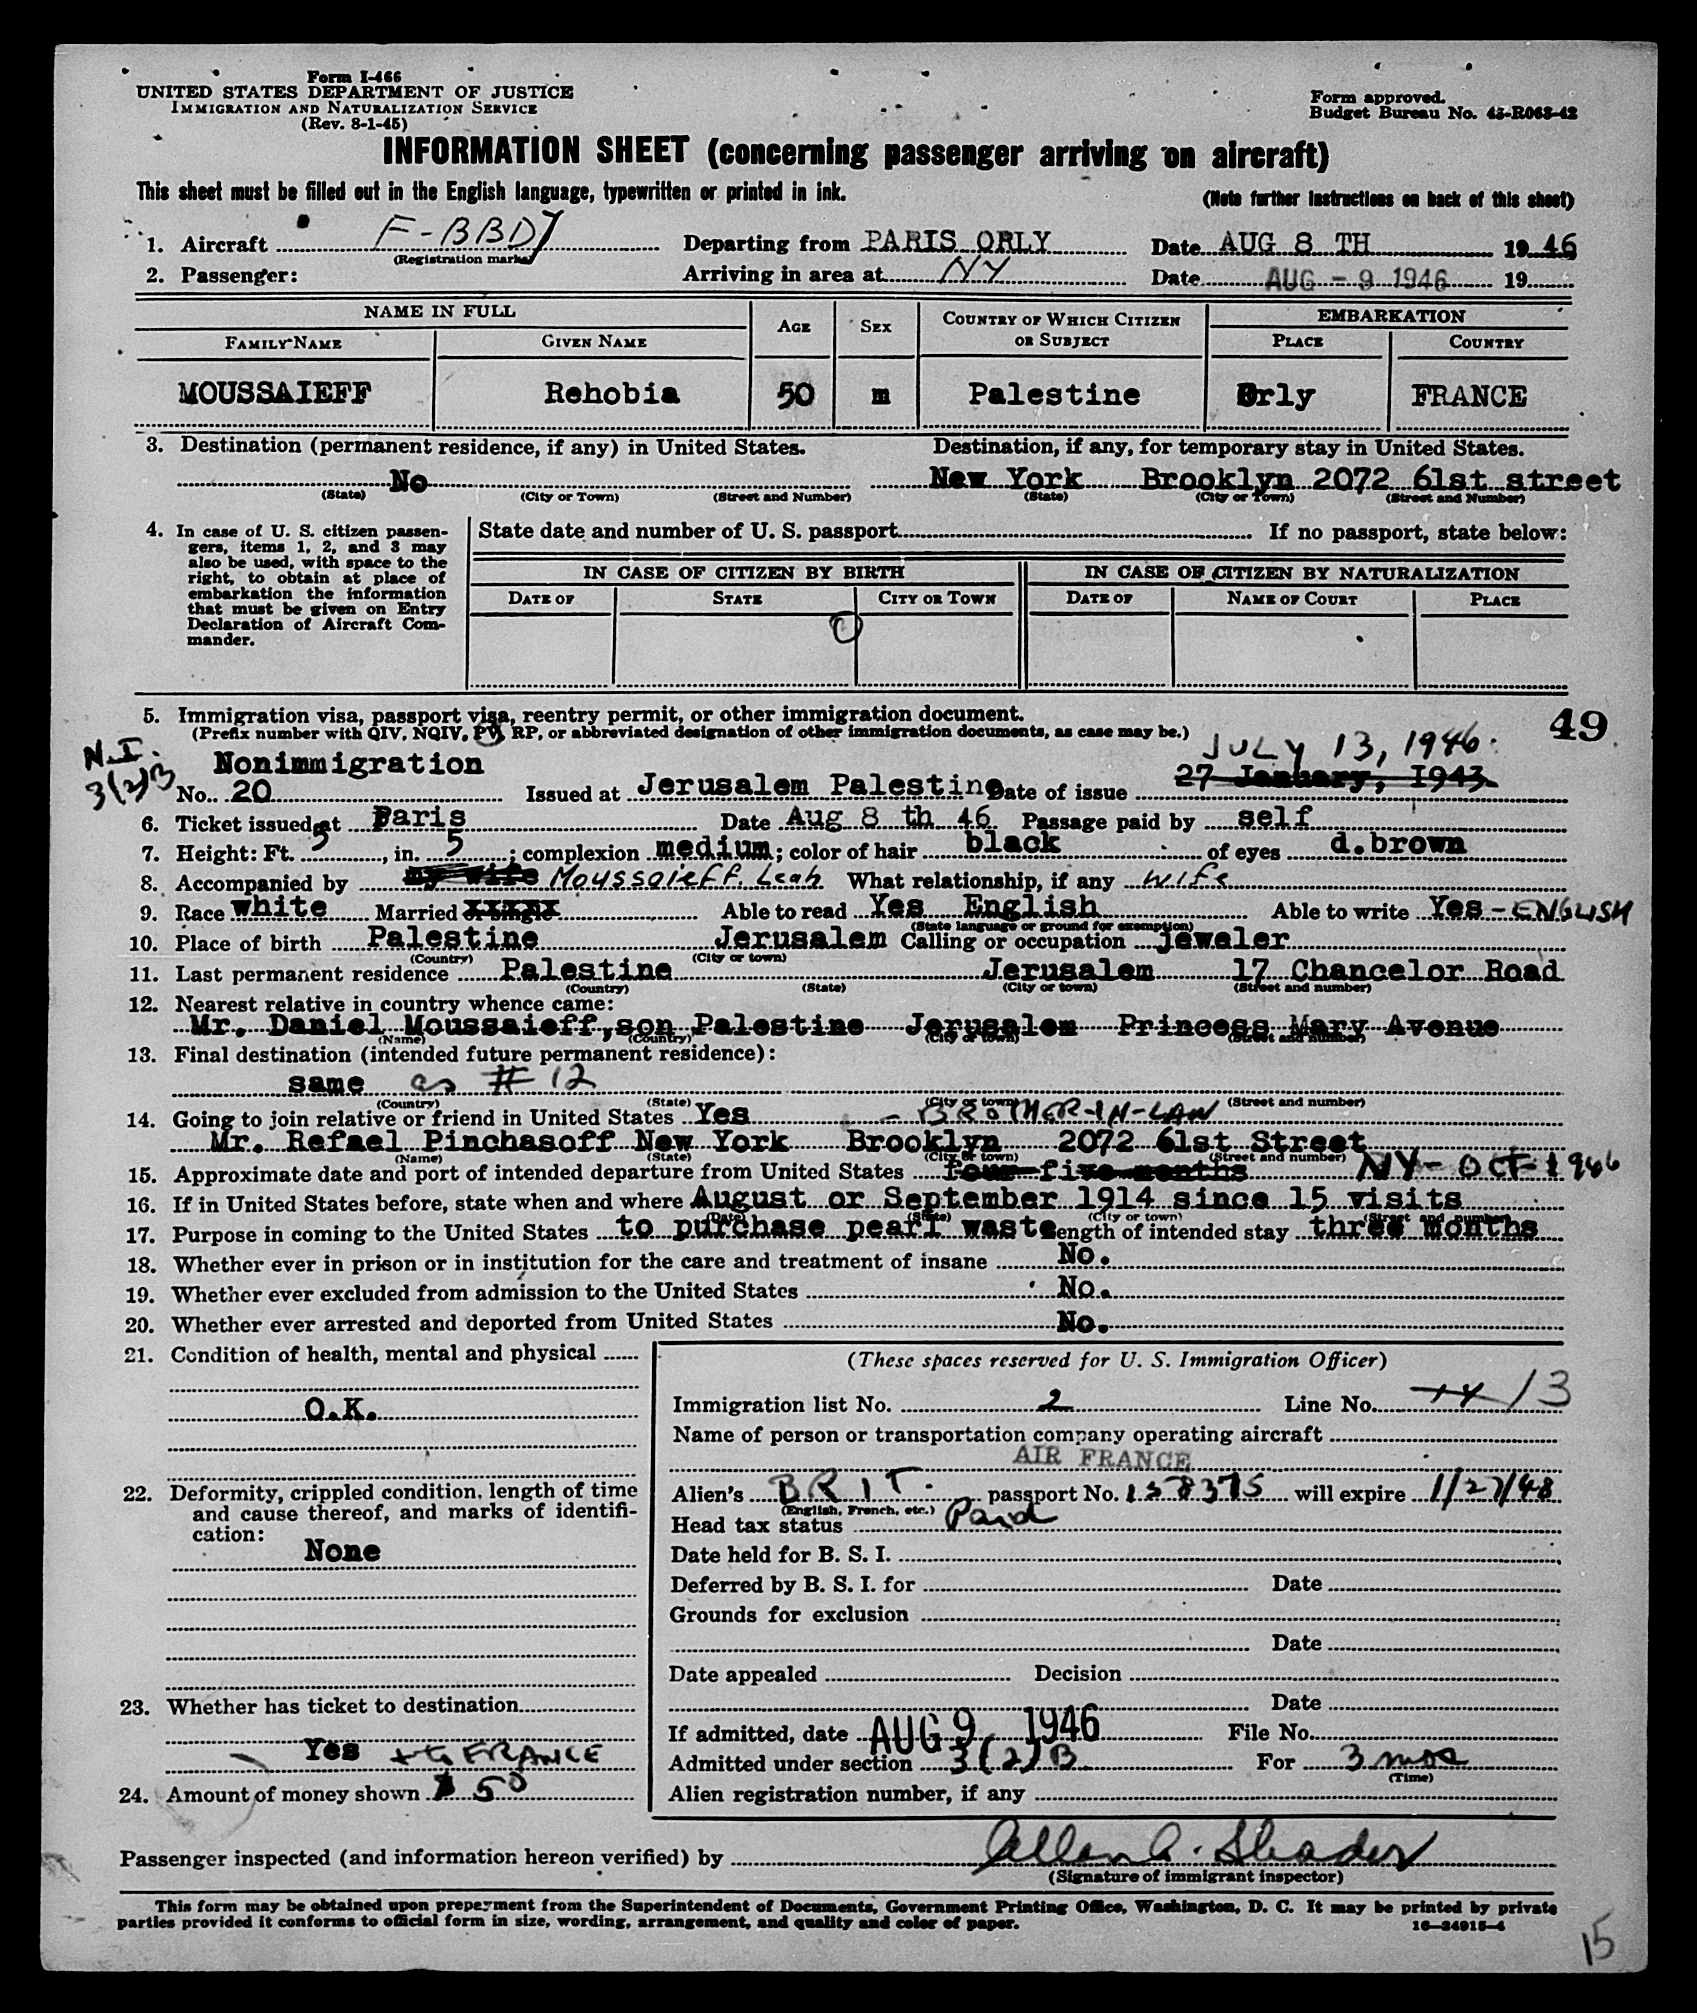 Form I-466
UNITED STATES DEPARTMENT OF JUSTICE
IMMIGRATION AND NATURALIZATION SERVICE
(Rev. 8-1-45)
Form approved.
Budget Bureau No. 43-R068-42
INFORMATION SHEET (concerning passenger arriving on aircraft)
This sheet must be filled out in the English language, typewritten or printed in ink.
(Note further instructions on back of this sheet)
1. Aircraft F-BBDJ Departing from PARIS ORLY Date AUG 8 TH 1946
(Registration marks)
2. Passenger: Arriving in area at NY Date AUG - 9 1946 19
NAME IN FULL AGE SEX COUNTRY OF WHICH CITIZEN OR SUBJECT EMBARKATION
FAMILY NAME GIVEN NAME PLACE COUNTRY
MOUSSAIEFF Rehobia 50 m Palestine Orly FRANCE
3. Destination (permanent residence, if any) in United States. Destination, if any, for temporary stay in United States.
No New York Brooklyn 2072 61st street
(State) (City or Town) (Street and Number) (State) (City or Town) (Street and Number)
4. In case of U. S. citizen passengers, items 1, 2, and 3 may also be used, with space to the right, to obtain at place of embarkation the information that must be given on Entry Declaration of Aircraft Commander.
State date and number of U. S. passport If no passport, state below:
IN CASE OF CITIZEN BY BIRTH IN CASE OF CITIZEN BY NATURALIZATION
DATE OF STATE CITY OR TOWN DATE OF NAME OF COURT PLACE
5. Immigration visa, passport visa, reentry permit, or other immigration document. 49
(Prefix number with QIV, NQIV, PV, RP, or abbreviated designation of other immigration documents, as case may be.)
N.I. 3(2)B
Nonimmigration JULY 13, 1946.
No. 20 Issued at Jerusalem Palestine Date of issue 27 January, 1943
6. Ticket issued at Paris Date Aug 8 th 46 Passage paid by self
7. Height: Ft. 5, in. 5; complexion medium; color of hair black of eyes d.brown
8. Accompanied by my wife Moussaieff. Leah What relationship, if any wife
9. Race white Married or single Able to read Yes English Able to write Yes - ENGLISH
(State language or ground for exemption)
10. Place of birth Palestine Jerusalem Calling or occupation jeweler
(Country) (City or town)
11. Last permanent residence Palestine Jerusalem 17 Chancelor Road
(Country) (State) (City or town) (Street and number)
12. Nearest relative in country whence came:
Mr. Daniel Moussaieff, son Palestine Jerusalem Princess Mary Avenue
(Name) (Country) (City or town) (Street and number)
13. Final destination (intended future permanent residence):
same as # 12
(Country) (State) (City or town) (Street and number)
14. Going to join relative or friend in United States Yes - BROTHER-IN-LAW
Mr. Refael Pinchasoff New York Brooklyn 2072 61st Street
(Name) (State) (City or town) (Street and number)
15. Approximate date and port of intended departure from United States four five months NY - OCT 1946
16. If in United States before, state when and where August or September 1914 since 15 visits
(Date) (State) (City or town) (Street and number)
17. Purpose in coming to the United States to purchase pearl waste Length of intended stay three months
18. Whether ever in prison or in institution for the care and treatment of insane No.
19. Whether ever excluded from admission to the United States No.
20. Whether ever arrested and deported from United States No.
21. Condition of health, mental and physical
O.K.
22. Deformity, crippled condition, length of time and cause thereof, and marks of identification:
None
23. Whether has ticket to destination
Yes + to FRANCE
24. Amount of money shown $ 50
(These spaces reserved for U. S. Immigration Officer)
Immigration list No. 2 Line No. 14 13
Name of person or transportation company operating aircraft
AIR FRANCE
Alien's BRIT. passport No. 158375 will expire 1/27/48
(English, French, etc.)
Head tax status Paid
Date held for B. S. I.
Deferred by B. S. I. for Date
Grounds for exclusion
Date
Date appealed Decision
Date
If admitted, date AUG 9 1946 File No.
Admitted under section 3(2)B For 3 mos
(Time)
Alien registration number, if any
Passenger inspected (and information hereon verified) by Allen A. Shader
(Signature of immigrant inspector)
This form may be obtained upon prepayment from the Superintendent of Documents, Government Printing Office, Washington, D. C. It may be printed by private
parties provided it conforms to official form in size, wording, arrangement, and quality and color of paper.
16-24915-4
15